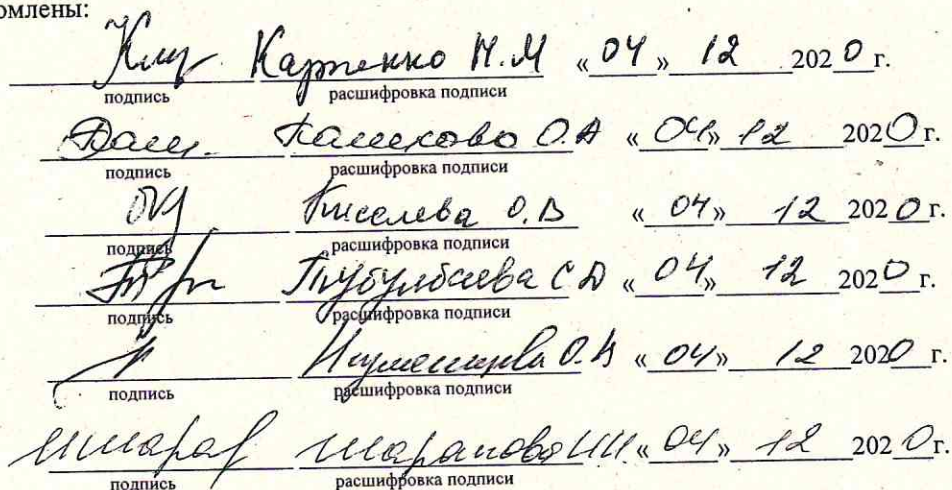 омлены:
Карпенко Н.М «04» 12 2020 г.
подпись расшифровка подписи
О.А «04» 12 2020 г.
подпись расшифровка подписи
Киселева О.В «04» 12 2020 г.
подпись расшифровка подписи
С Д «04» 12 2020 г.
подпись расшифровка подписи
О.А «04» 12 2020 г.
подпись расшифровка подписи
Шарапова И.И. «04» 12 2020 г.
подпись расшифровка подписи